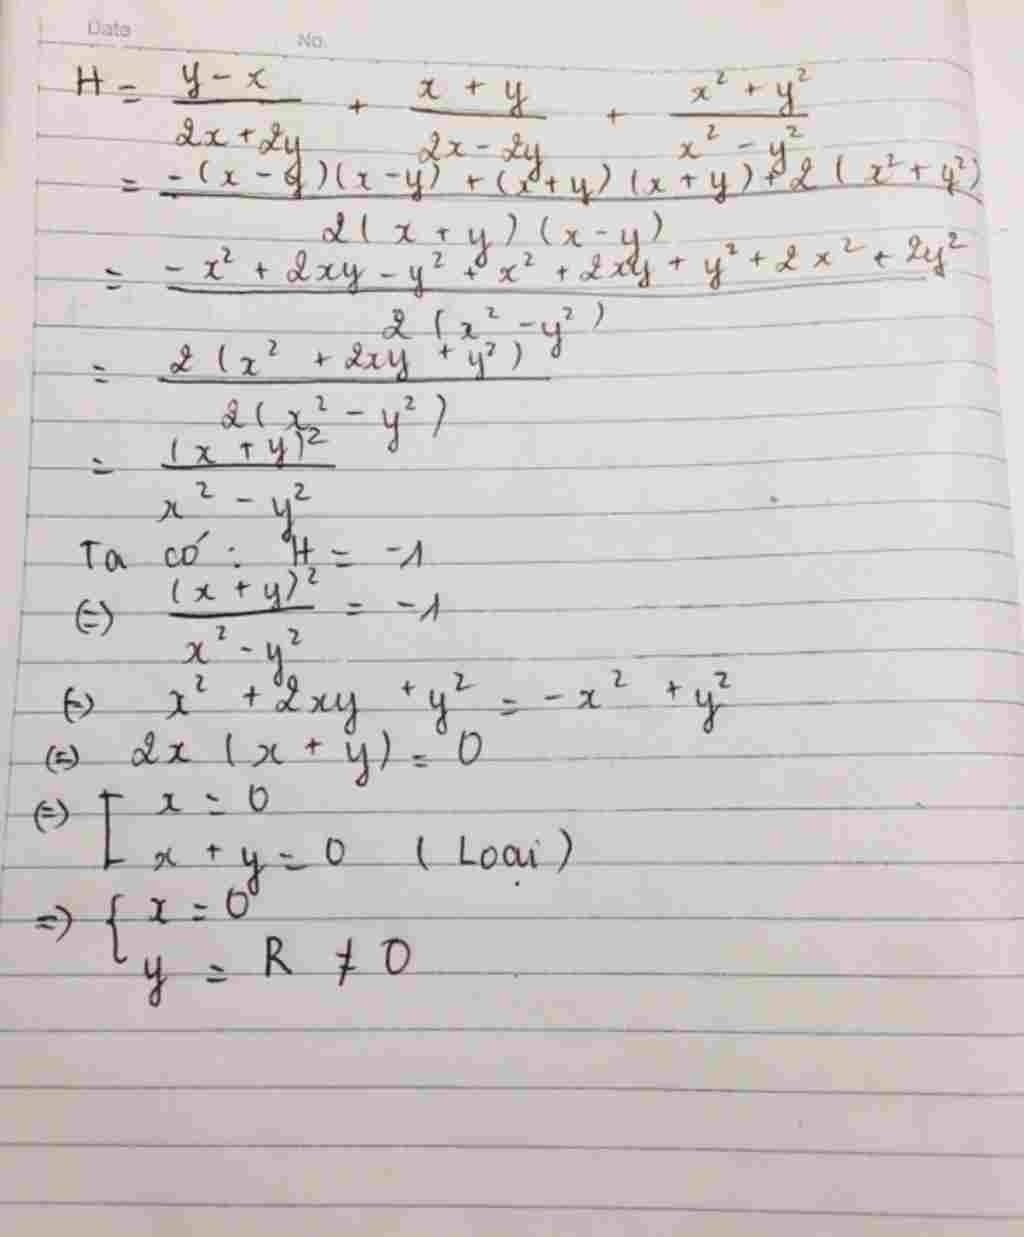 Date No.
H = \frac{y - x}{2x + 2y} + \frac{x + y}{2x - 2y} + \frac{x² + y²}{x² - y²}
= \frac{-(x - y)(x - y) + (x + y)(x + y) + 2(x² + y²)}{2(x + y)(x - y)}
= \frac{-x² + 2xy - y² + x² + 2xy + y² + 2x² + 2y²}{2(x² - y²)}
= \frac{2(x² + 2xy + y²)}{2(x² - y²)}
= \frac{(x + y)²}{x² - y²}
Ta có: H = -1
(=) \frac{(x + y)²}{x² - y²} = -1
(=) x² + 2xy + y² = -x² + y²
(=) 2x (x + y) = 0
(=) [ x = 0
x + y = 0 (Loại)
=) { x = 0
y = R ≠ 0